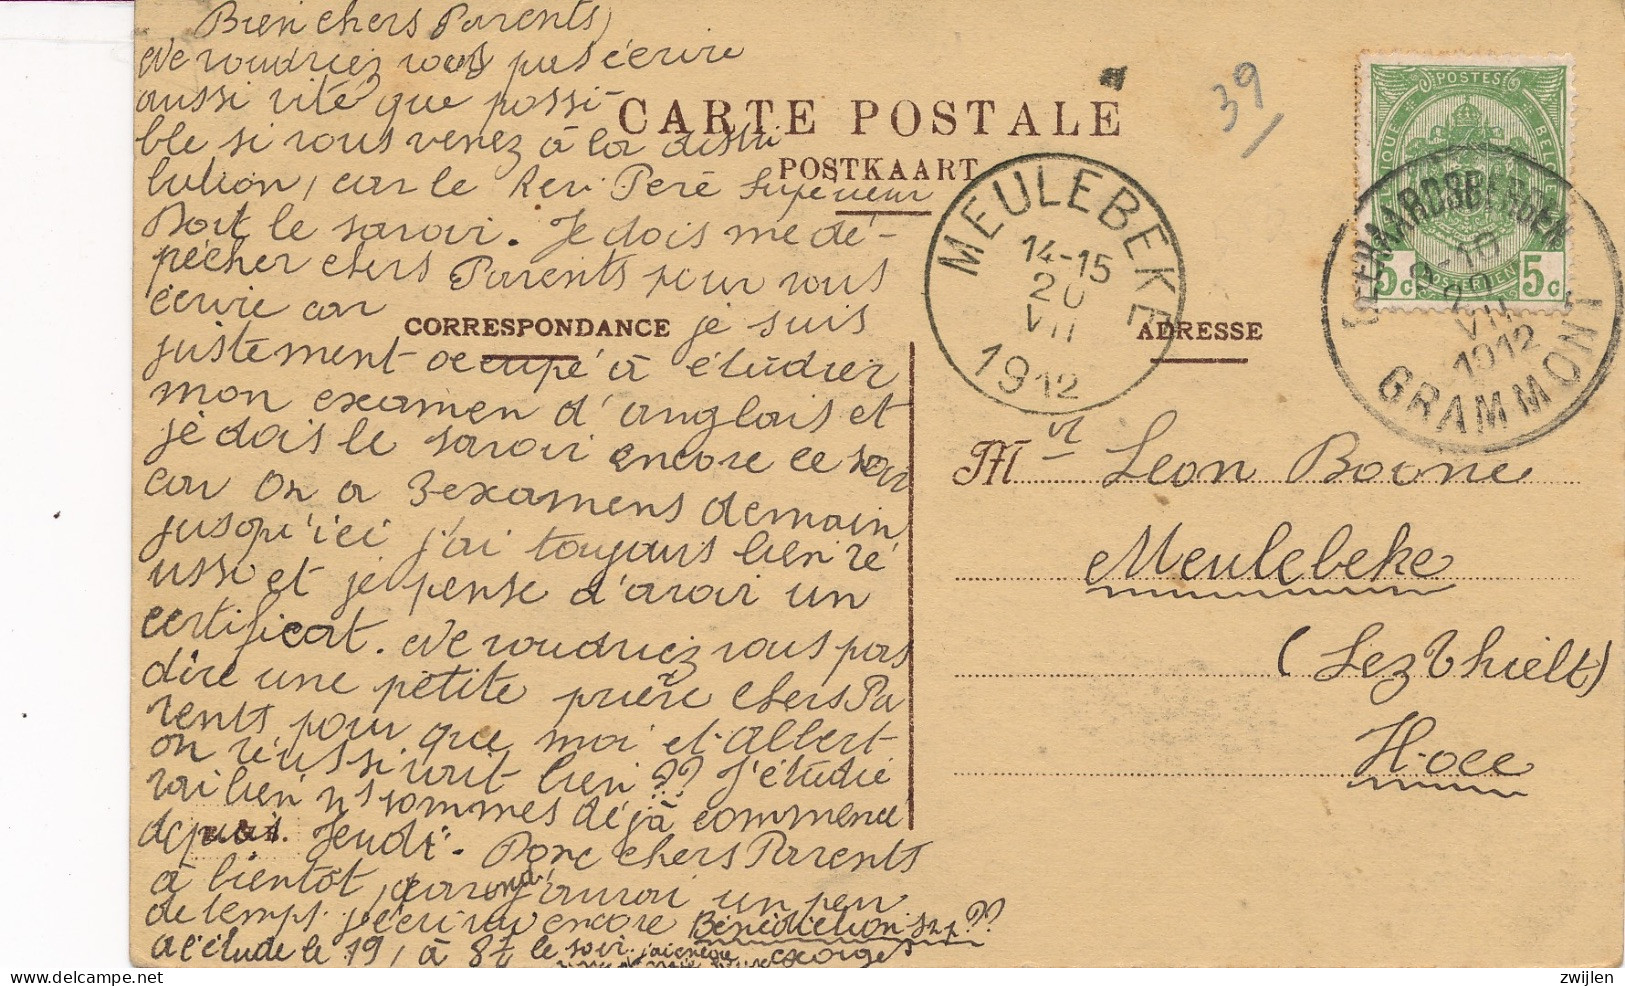 Bien chers Parents,
Ne voudriez vous pas écrire
aussi vite que possi-
ble si vous venez à la distri
bution, car le Rev. Pere Superieur
Doit le savoir. Je dois me dé-
pêcher chers Parents pour vous
écrire car je suis
justement occupé à étudier
mon examen d'anglais et
je dois le savoir encore ce soir
car on a 3 examens demain
jusqu'ici j'ai toujours bien ré
ussi et je pense d'avoir un
certificat. Ne voudriez vous pas
dire une petite prière chers Pa
rents pour que moi et Albert
on réussivait bien?? J'étudie
rai bien ns sommes déjà commencé
depuis Jeudi. Donc chers Parents
à bientôt, quand j'aurai un peu
de temps j'écrirai encore Bénédiction s.v.p??
à l'étude le 19, à 8½ le soir. j'ai encore
Georges
CARTE POSTALE
POSTKAART
CORRESPONDANCE
ADRESSE
39
POSTES
BELGIQUE
BELGIE
POSTERIJEN
5c 5c
MEULEBEKE
14-15
20
VII
1912
GEERAARDSBERGEN
9-10
20
VII
1912
GRAMMONT
Mr Leon Boone
Meulebeke
(Lez Thielt)
H-occ
zwijlen